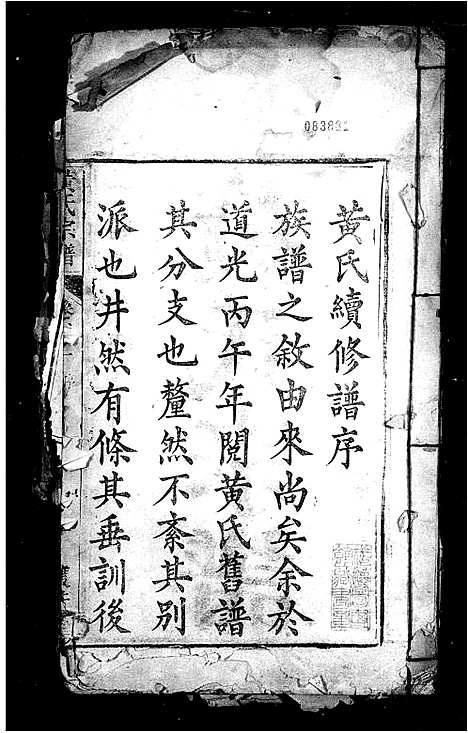 083831
黃氏續修譜序
族譜之敘由來尚矣余於
道光丙午年閱黃氏舊譜
其分支也釐然不紊其別
派也井然有條其垂訓後
黃氏宗譜